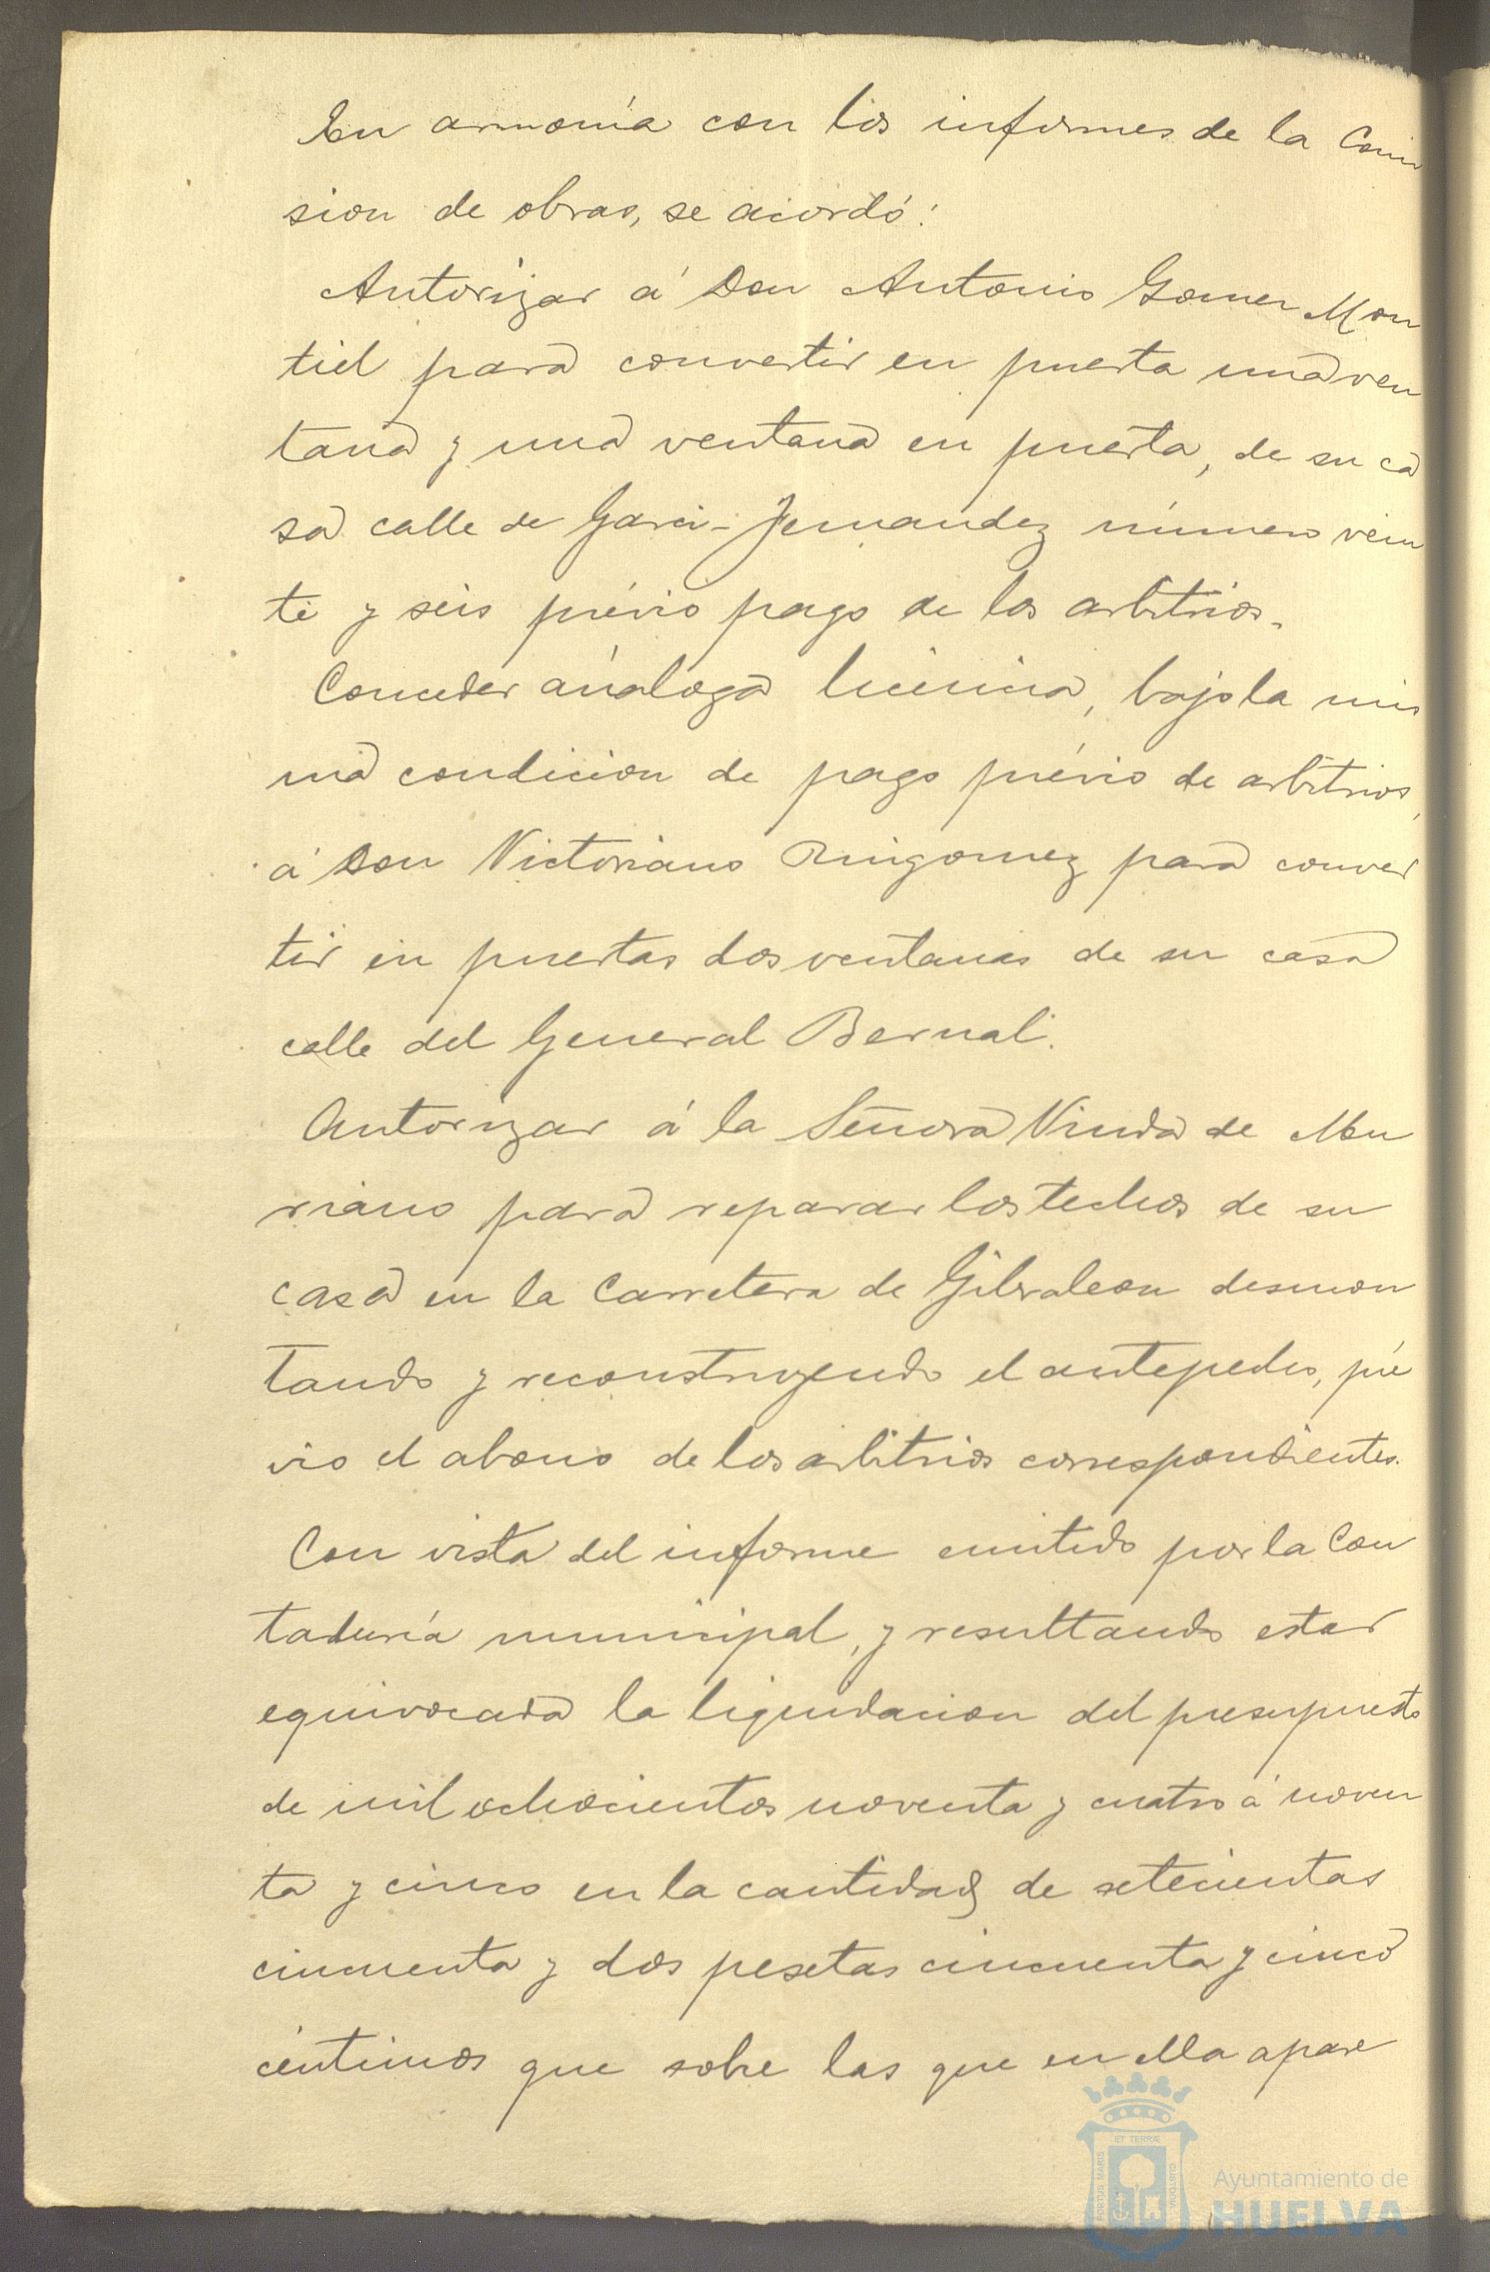 En armonía con los informes de la Comi
sion de obras, se acordó:
Autorizar á Don Antonio Gomez Mon
tiel para convertir en puerta una ven
tana y una ventana en puerta, de su ca
sa calle de Garci-Fernandez número vein
te y seis prévio pago de los arbitrios.
Conceder análoga licencia, bajo la mis
ma condicion de pago prévio de arbitrios,
á Don Victoriano Ruigomez para conver
tir en puertas dos ventanas de su casa
calle del General Bernal.
Autorizar á la Señora Viuda de Mu
riano para reparar los techos de su
casa en la Carretera de Gibraleon desmon
tando y reconstruyendo el antepecho, pré
vio el abono de los arbitrios correspondientes.
Con vista del informe emitido por la Con
taduría municipal, y resultando estar
equivocada la liquidacion del presupuesto
de mil ochocientos noventa y cuatro á noven
ta y cinco en la cantidad de setecientas
cincuenta y dos pesetas cincuenta y cinco
céntimos que sobre las que en ella apare
PORTUS MARIS
ET TERRÆ
CUSTODIA
Ayuntamiento de
HUELVA